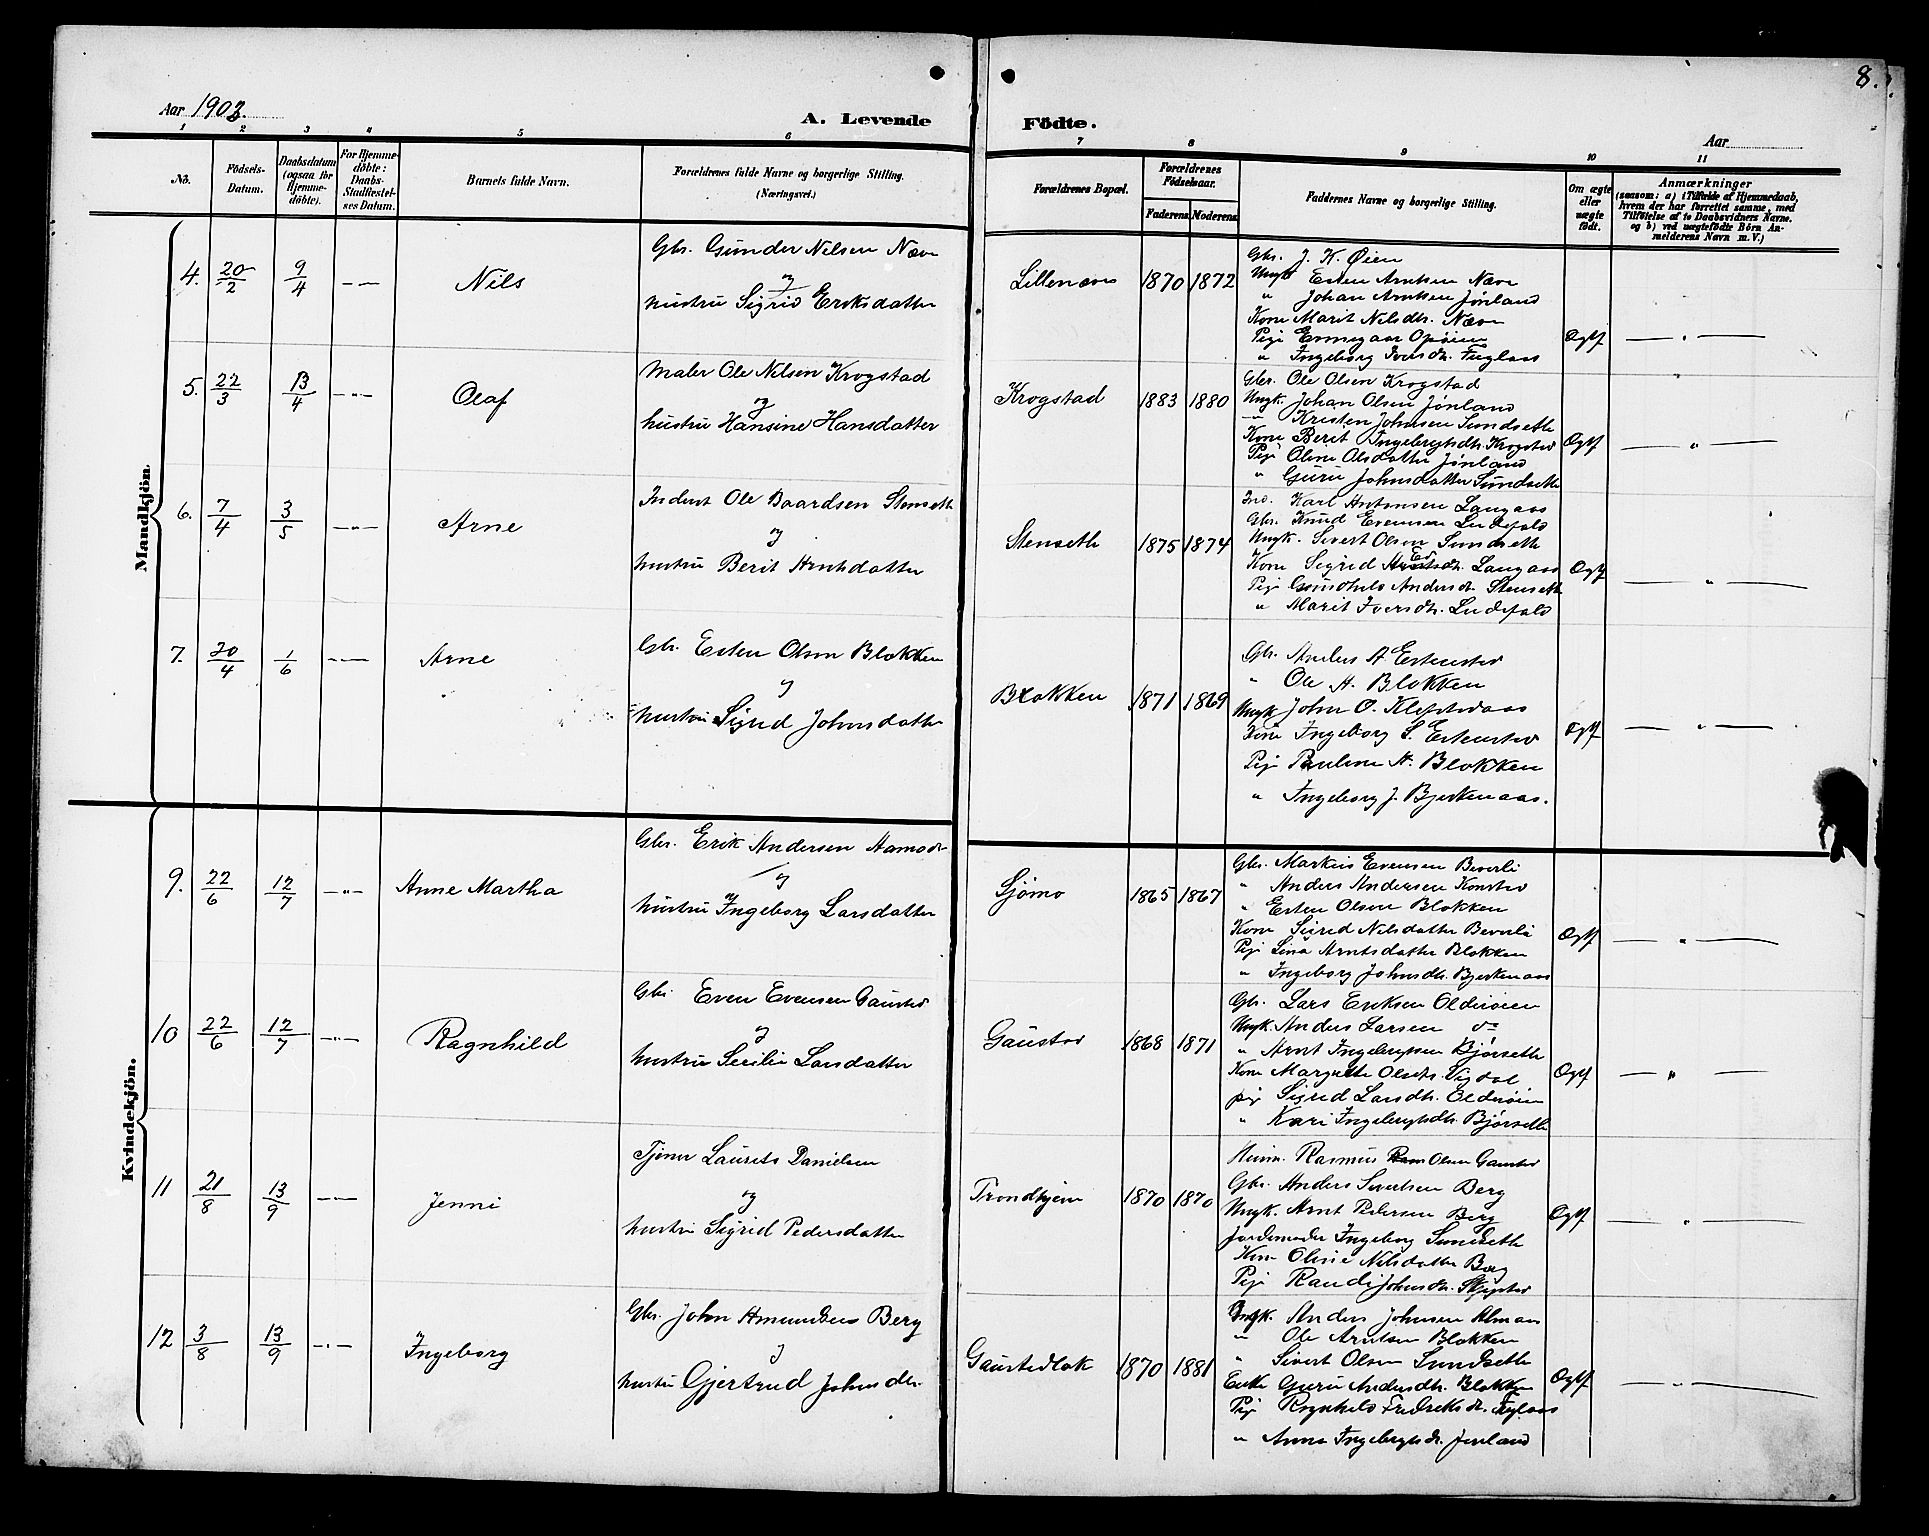 8.
Aar 1903.
A. Levende Födte.
Aar
1 2 3 4 5 6 7 8 9 10 11
No.
Födsels-Datum.
Daabsdatum (ogsaa for Hjemme-døbte).
For Hjemme-døbte: Daabs-Stadfæstel-ses Datum.
Barnets fulde Navn.
Forældrenes fulde Navne og borgerlige Stilling. (Næringsvei.)
Forældrenes Bopæl.
Forældrenes Födselsaar.
Faderens. Moderens.
Faddernes Navne og borgerlige Stilling.
Om ægte eller uægte født.
Anmærkninger
(saasom: a) i Tilfælde af Hjemmedaab, hvem der har forrettet samme, med Tilføielse af to Daabsvidners Navne. og b) ved uægtefødte Børn An-melderens Navn m. V.)
Mandkjön.
4. 20/2 9/4 Nils
Gbr. Gunder Nilsen Næve
og
hustru Sigrid Eriksdatter
Lillenæve 1870 1872
Gbr. J. K. Øien
Ungk. Esten Arntsen Næve
" Johan Arntsen Jønland
Kone Marit Nilsdtr. Næve
Pige Opøien
" Ingeborg Iversdtr. Fuglaas
Ægtf
5. 22/3 13/4 Olaf
Maler Ole Nilsen Krogstad
og
hustru Hansine Hansdatter
Krogstad 1883 1880
Gbr. Ole Olsen Krogstad
Ungk. Johan Olsen Jønland
" Kristen Johnsen Sundseth
Kone Berit Ingebrigtsdtr. Krogstad
Pige Oline Olsdatter Jønland
" Guru Johnsdatter Sundseth
Ægtf
6. 7/4 3/5 Arne
Inderst Ole Baardsen Stenseth
og
hustru Berit Arntsdatter
Stenseth 1875 1874
Ind. Karl Antonsen Langaas
Gbr. Knud Evensen
Ungk. Sivert Olsen Sundseth
Kone Sigrid Langaas
Pige Gunhild Andersdt. Stenseth
" Marit Iversdtr.
Ægtf
7. 20/4 1/6 Arne
Gbr. Esten Olsen Blokken
og
hustru Sigrid Johnsdatter
Blokken 1871 1869
Gbr. Anders A Estenstad
" Ole A. Blokken
Ungk John O.
Kone Ingeborg S. Estenstad
Pige Pauline A. Blokken
" Ingeborg J. Bjerkenaas.
Ægtf
Kvindekjön.
9. 22/6 12/7 Anne Martha
Gbr. Erik Andersen Aamodt
og
hustru Ingeborg Larsdatter
Sjømo 1865 1867
Gbr. Markus Evensen Beverli
" Anders Andersen Konstad
" Esten Olsen Blokken
Kone Sigrid Nilsdatter Beverli
Pige Lina Arntsdatter Blokken
" Ingeborg Johnsdt. Bjerkenaas
Ægtf
10 22/6 12/7 Ragnhild
Gbr. Even Evensen Gaustad
og
hustru Secilie Larsdatter
Gaustad 1868 1871
Gbr. Lars Eriksen Olderøien
Ungk. Anders Larsen do
" Arnt Ingebrigtsen Bjørseth
Kone Margrette Olsdtr. Vigdal
pige Sigrid Larsdtr. Olderøien
" Kari Ingebrigtsdtr. Bjørseth
Ægtf
11 21/8 13/9 Jenni
Tjener Laurits Danielsen
og
hustru Sigrid Pedersdatter
Trondhjem 1870 1870
Rasmus Olsen Gaustad
Gbr. Anders Sivertsen Berg
Ungk. Arnt Pedersen Berg
Jordemoder Ingeborg Sundseth
Kone Oline Nilsdatter Berg
Pige Randi Johnsdtr.
Ægtf
12 3/8 13/9 Ingeborg
Gbr. John Amundsen Berg
og
hustru Gjertrud Johnsdtr.
Gaustadbak 1870 1881
Ungk. Anders Johnsen Alman
" Ole Arntsen Blokken
" Sivert Olsen Sundseth
Enke Guru Andersdtr. Blokken
Pige Ragnhild Fredriksdtr. Fuglaas
" Anna Ingebrigtsdtr. Jønland
Ægtf